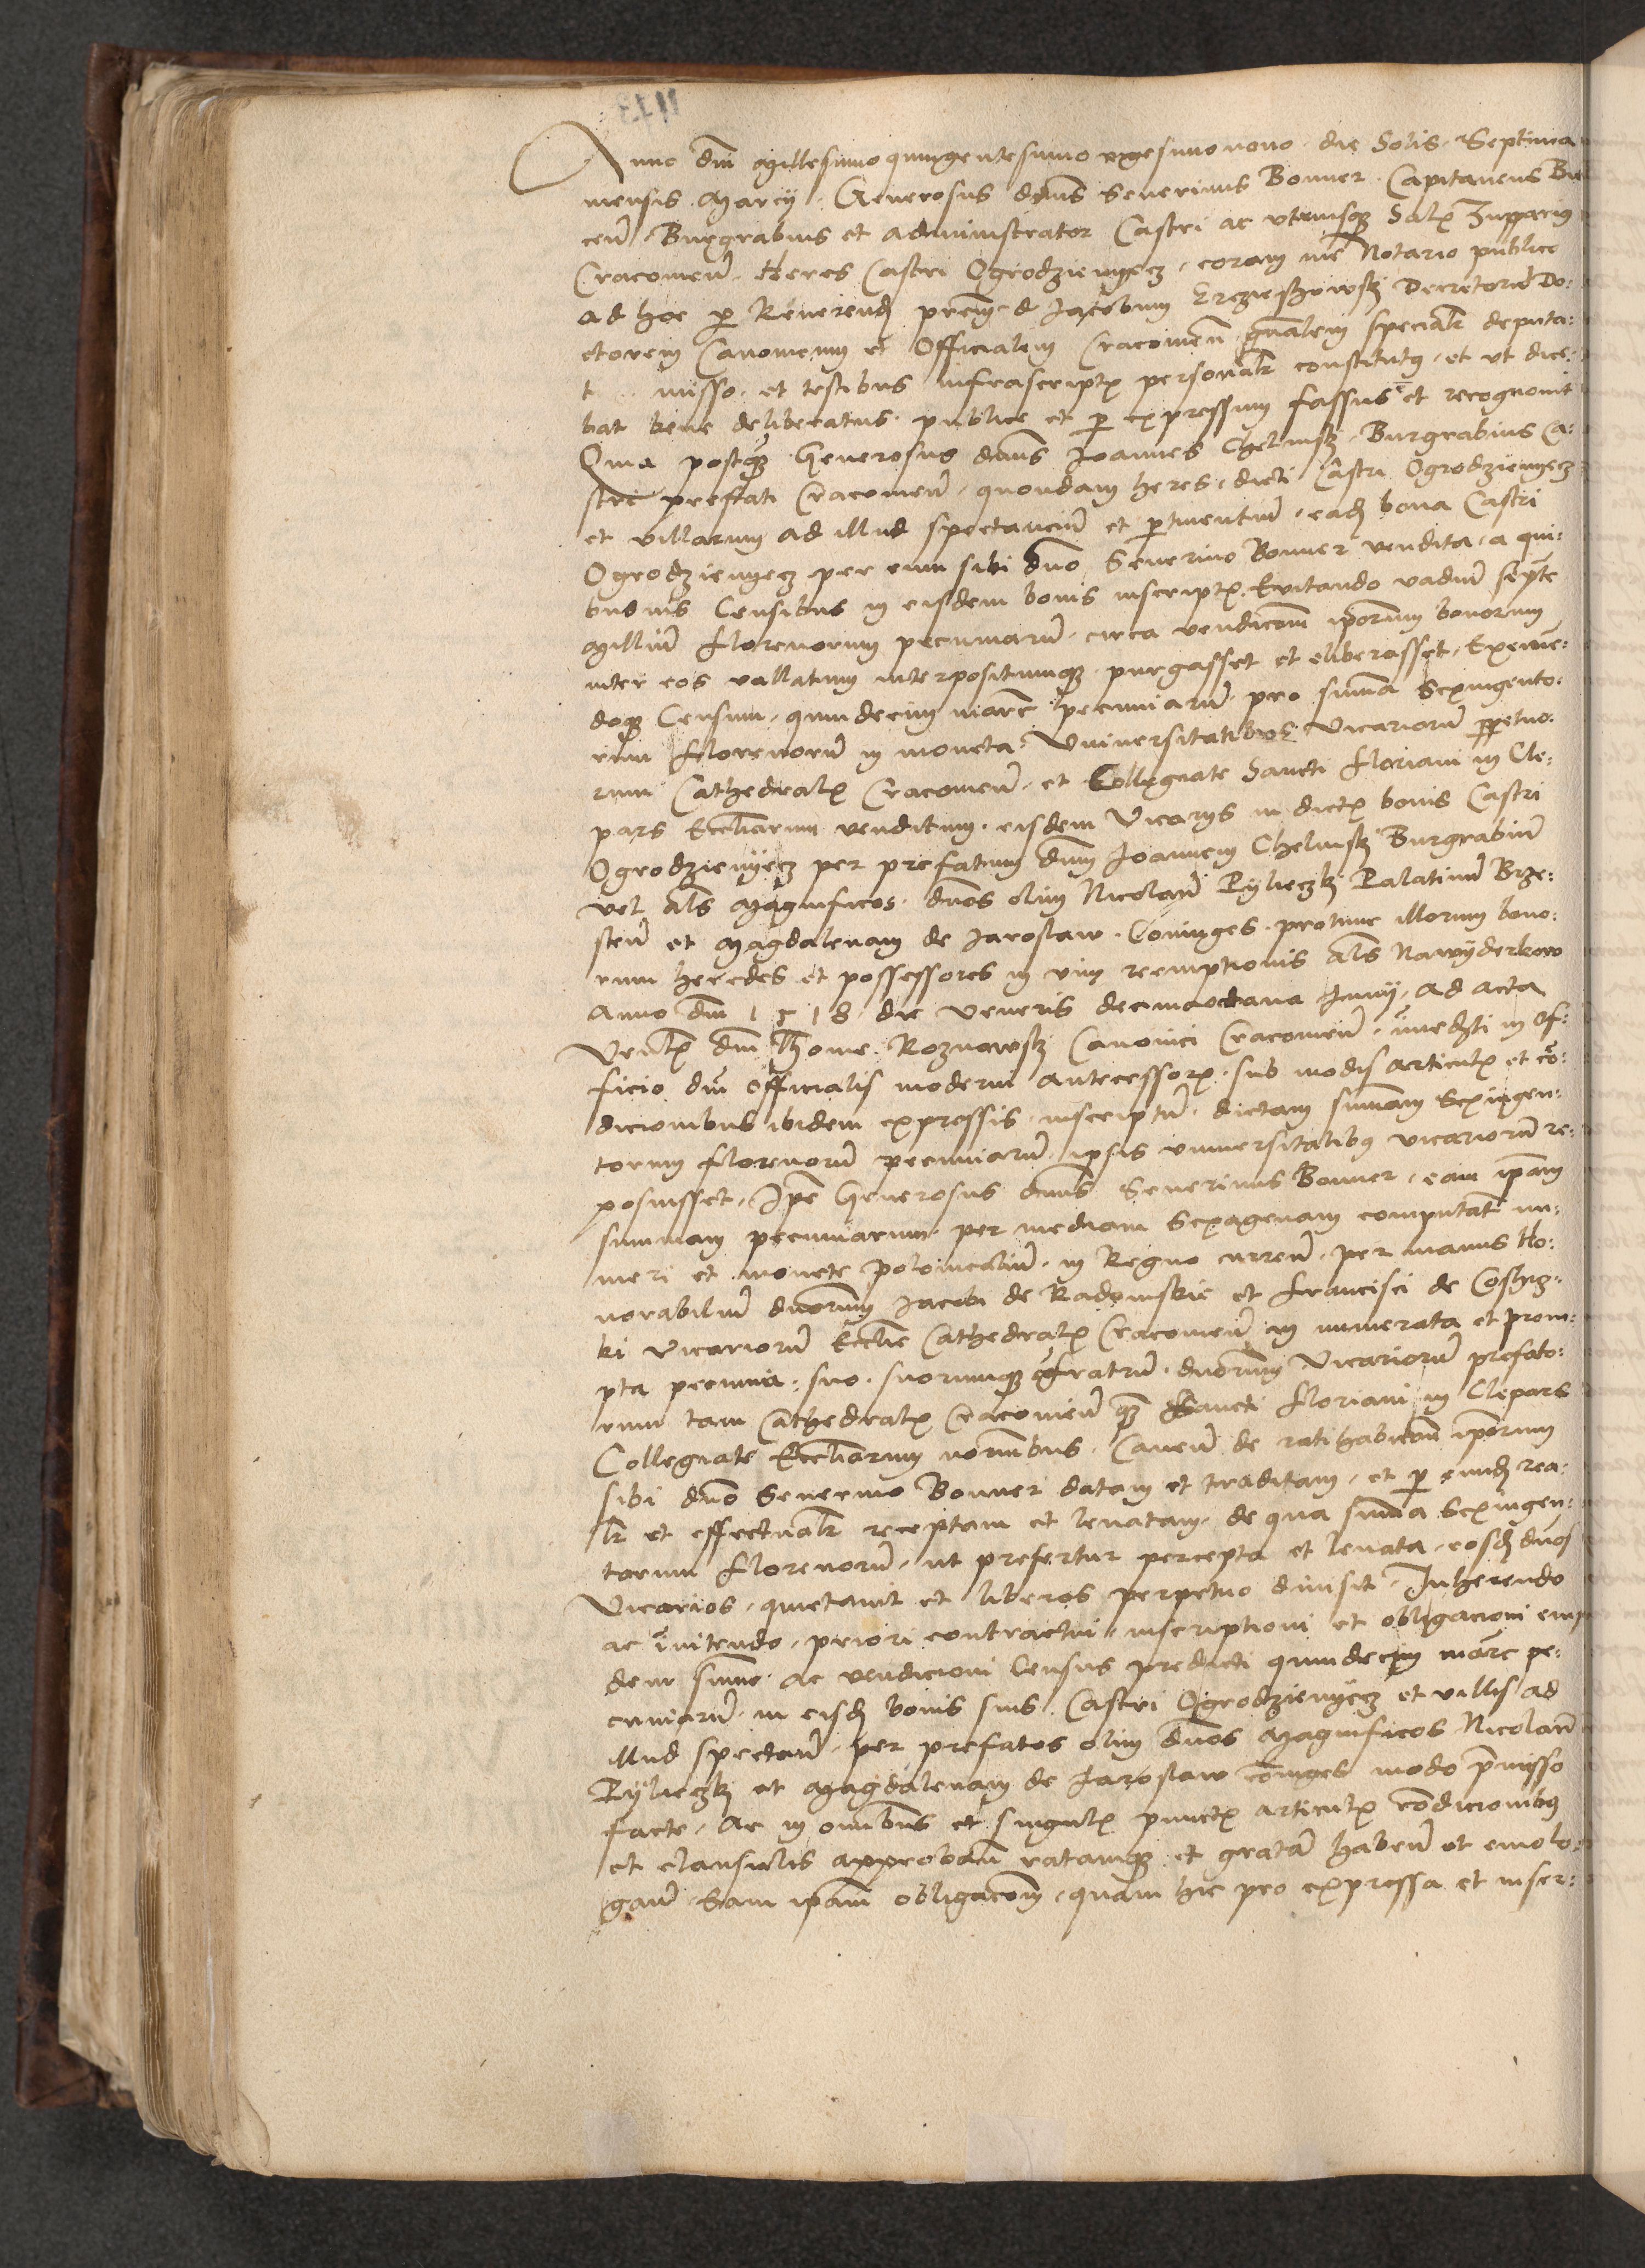 Anno dni Millesimo quingentesimo vigesimonono die Solis Septima
mensis Marcij Generosus dnus Seuerinus Bonner Capitaneus Bie
cen Burgrabius et administrator Castri ac vtriusque Salis Zupparius
Cracouien heres Castri Ogrodzienyecz coram me Notario publico
ad hoc per Reuerend prem d Jacobum Erczieschowski Decretorum Do:
ctorem Canonicum et Officialem Cracouien gnalem specialr deputa:
t misso et testibus infrascriptis personalr constitutus et vt dice:
bat bene deliberatus publice et per expressum fassus et recognouit
Quia postque Generosus dnus Joannes Chelmski Burgrabius Ca:
stri prefati Cracouien quondam heres dicti Castri Ogrodzienyecz
et villarum ad illud spectancium et pertinentium ead bona Castri
Ogrodzienyecz per eum sibi dno Seuerino Bonner vendita a qui:
busuis Censibus in eisdem bonis inscriptis Euitando vadium septe
Millium florenorum pecuniarum circa vendicom iporum bonorum
inter eos vallatum interpositumque purgasset et eliberasset Eximen:
doque Censum quindecim marc pecuniarum pro suma Sexingento:
rum florenorum in moneta Vniuersitatibus Vicariorum perpetuo:
rum Cathedralis Cracouien et Collegiate Sancti floriani in Cle:
pars Eccliarum venditum eisdem Vicarijs in dictis bonis Castri
Ogrodzienyecz per prefatum dnm Joannem Chelmski Burgrabium
vel als Magnificos dnos olim Nicolaum Pylieczki Palatinum Brze:
sten et Magdalenam de Jaroslaw Coniuges protunc illorum bono:
rum heredes et possessores in vim reemptionis als Nawyderkow
Anno dni 1518 die Veneris decimaoctaua Junij ad acta
Venlis dni Thome Roznowski Canonici Cracouien imediati in Of:
ficio dni officialis moderni antecessoris sub modis articulis et co:
dicionibus ibidem expressis inscriptum dictam sumam Sexingen:
torum florenorum pecuniarum ipsis vniuersitatibus vicariorum re:
posuisset Ipe Generosus dnus Seuerinus Bonner eam ipam
summam pecuniarum per mediam Sexagenam computatam nu:
meri et monete polonicalium in Regno curren per manus Ho:
norabilium dnorum Jacobi de Radomskie et francisci de
ki Vicariorum Ecclie Cathedralis Cracouien in numerata et prom:
pta pecunia suo suorumque confratrum dnorum Vicariorum prefato:
rum tam Cathedralis Cracouien que Sancti floriani in Clepars
Collegiate Eccliarum nominibus Cauen de ratihabicom iporum
sibi dno Seuerino Bonner datam et traditam et per eund rea:
lr et effectualr receptam et leuatam de qua suma Sexingen:
torum florenorum ut prefertur percepta et leuata eosd dnos
Vicarios quietauit et liberos perpetuo dimisit Inherendo
ac initendo priori contractui inscriptioni et obligacioni eius
dem sume ac vendicioni Census predicti quindecim marc pe:
cuniarum in eisd bonis suis Castri Ogrodzienyecz et villis ad
illud spectan per prefatos olim dnos Magnificos Nicolaum
Pylieczki et Magdalenam de Jaroslaw coniuges modo premisso
facte Ac in omnibus et singulis punctis articulis condicionibus
et clausulis approban ratamque et gratam haben et emolo:
gan Eam ipam obligacom quam hic pro expressa et inser: